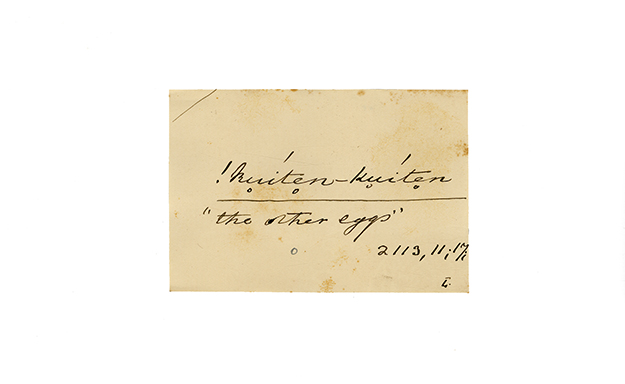 !ku̥íte̥n-ku̥íte̥n
"the other eggs"
2113, 11, 17,
L.